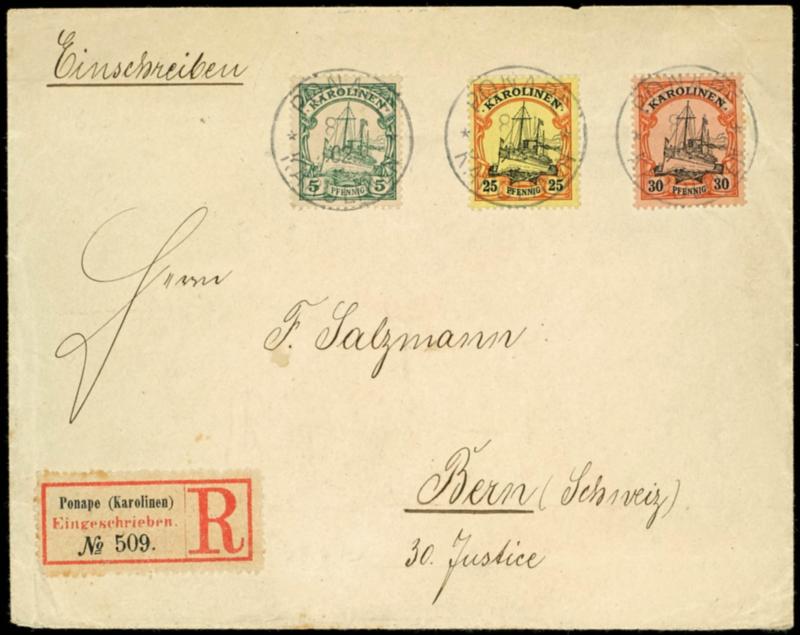 Einschreiben
KAROLINEN
5 PFENNIG 5
KAROLINEN
25 PFENNIG 25
KAROLINEN
30 PFENNIG 30
PONAPE
8
02
PONAPE
8
Herrn
F. Salzmann
Bern (Schweiz)
30. Justice
Ponape (Karolinen)
Eingeschrieben.
№ 509.
R